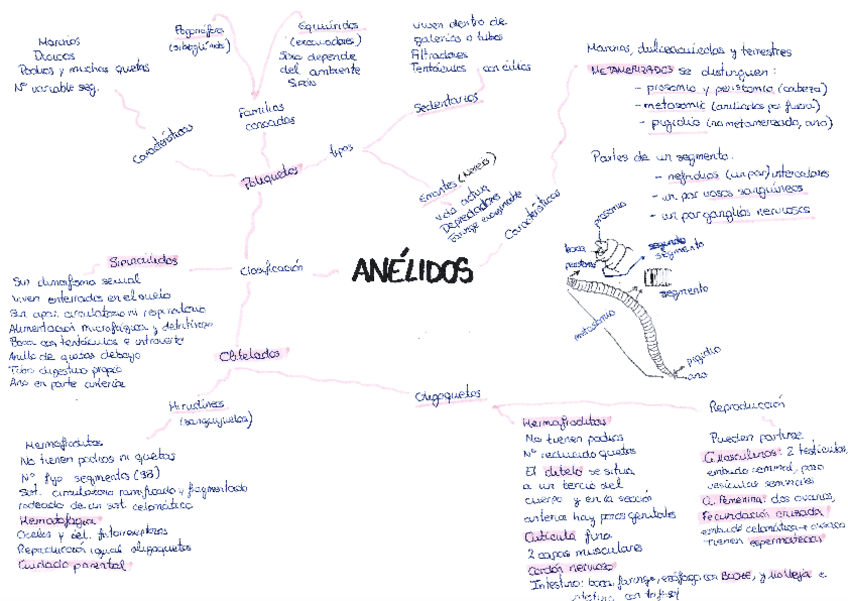 ANÉLIDOS
Características
Marinos, dulceacuícolas y terrestres
METAMERIZADOS se distinguen:
- prosomio y peristomio (cabeza)
- metasomio (anillados por fuera)
- pigidio (no metamerizado, ano)
Partes de un segmento.
- nefridios (un par) intercalares
- un par vasos sanguíneos
- un par ganglios nerviosos
prosomio
boca
segundo
segmento
segmento
metasomio
pigidio
ano
Clasificación
Poliquetos
Características
Marinos
Dioicos
Podios y muchas quetas
Nº variable seg.
Familias
conocidas
Pogonóforos
(siboglínidos)
Equiúridos
(excavadores)
Sexo depende
del ambiente
tipos
Sedentarios
viven dentro de
galerías o tubos
Filtradores
Tentáculos con cilios
Errantes (Nereis)
Vida activa
Depredadores
Faringe evaginable
Sipuncúlidos
Sin dimorfismo sexual
Viven enterrados en el suelo
Sin apar. circulatorio ni respiratorio
Alimentación micrófaga y detritívora
Boca con tentáculos e introverto
Anillo de quetas debajo
Tubo digestivo propio
Ano en parte anterior
Clitelados
Hirudíneos
(sanguijuelas)
Hermafroditas
No tienen podios ni quetas
Nº fijo segmentos (33)
Sist. circulatorio ramificado y fragmentado
rodeado de un sist. celomático
Hematofagia
Ocelos y cél. fotorreceptoras
Reproducción igual oligoquetos
Cuidado parental
Oligoquetos
Hermafroditas
No tienen podios
Nº reducido quetas
El clitelo se sitúa
a un tercio del
cuerpo y en la sección
anterior hay poros genitales
Cutícula fina
2 capas musculares
Cordón nervioso
Intestino: boca, faringe, esófago con BUCHE, y molleja e
Reproducción
G. Masculinas: 2 testículos,
embudo seminal, poro
vesículas seminales
G. Femenina: dos ovarios,
Fecundación cruzada
Tienen espermatecas